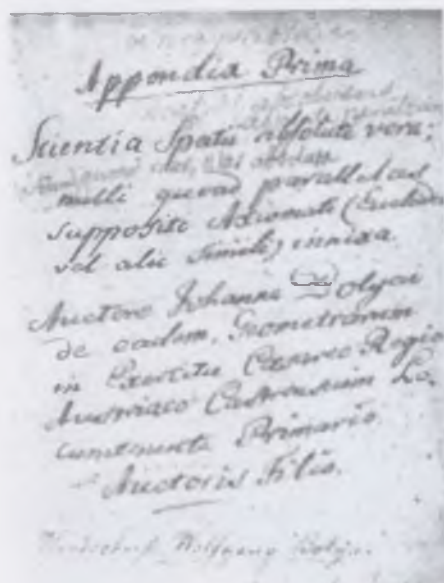 Appendix Prima
Scientia Spatii absolute vera;
nulli quoad parallelas
supposito Axiomati (Euclideo
vel alii simili) innixa.
Auctore Johanne Bolyai
de eadem, Geometrarum
in Exercitu Caesareo Regio
Austriaco Castrensium Lo-
cumtenente Primario.
Auctoris Filio.
Wolfgang Bolyai